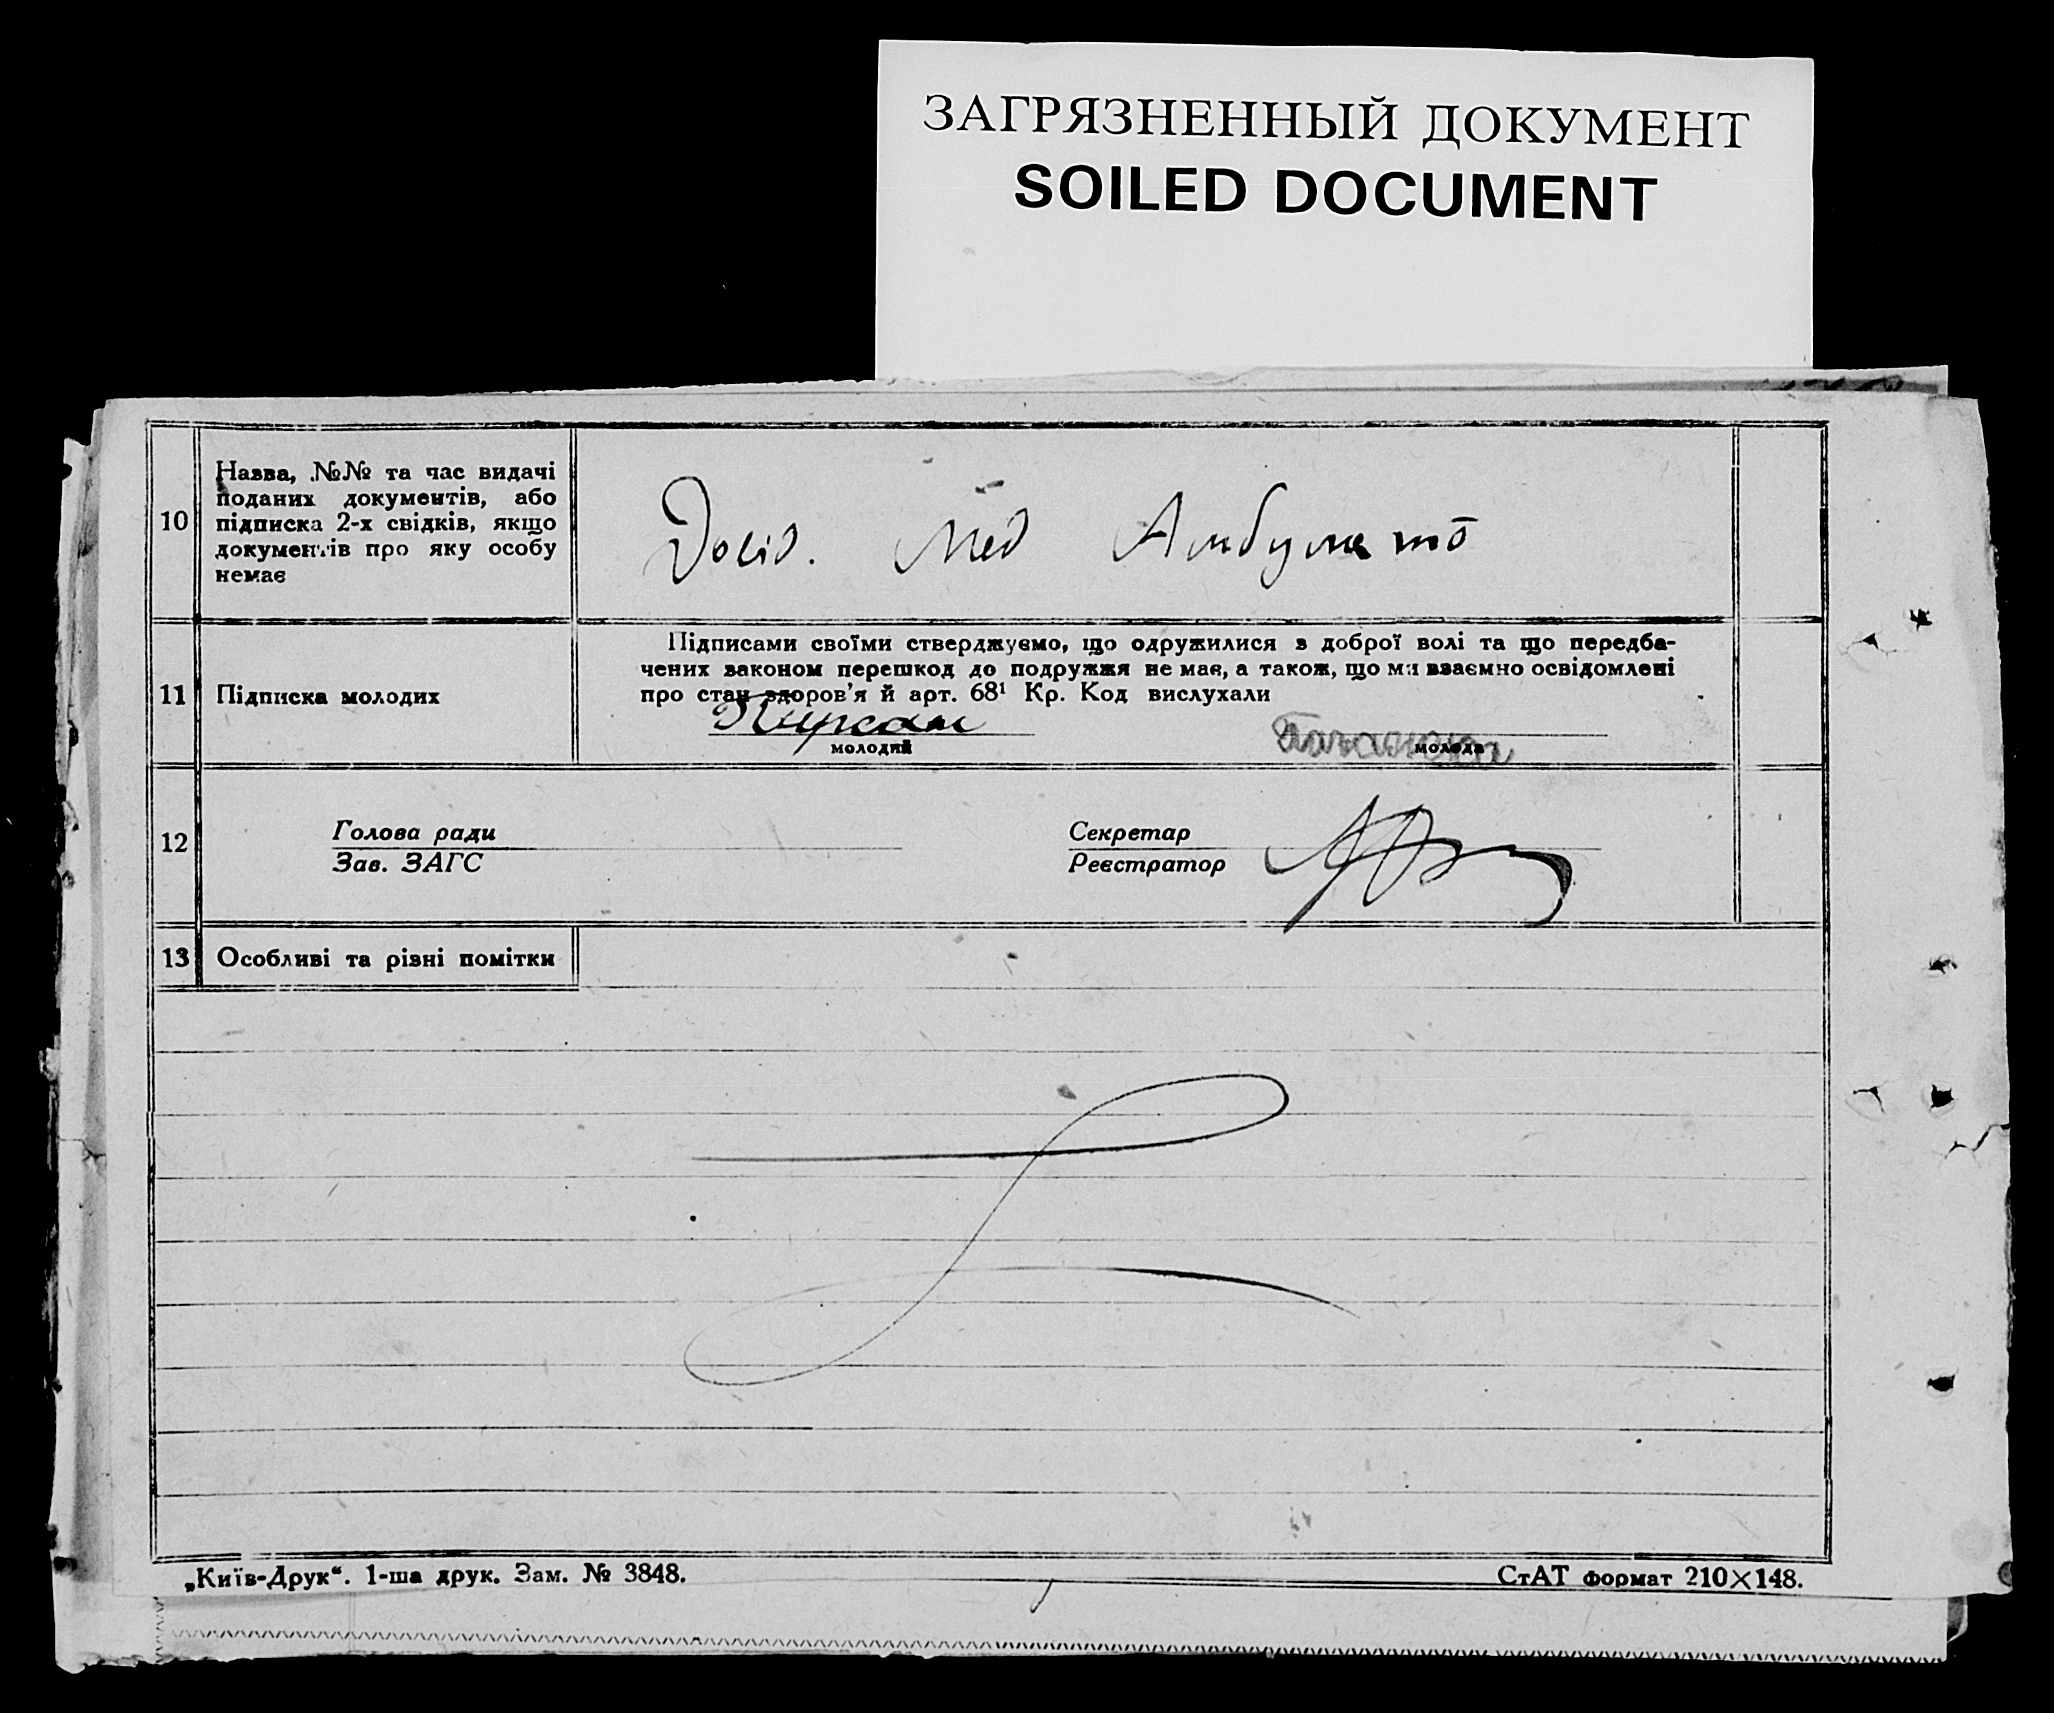 ЗАГРЯЗНЕННЫЙ ДОКУМЕНТ
SOILED DOCUMENT
10
Назва, №№ та час видачі
поданих документів, або
підписка 2-х свідків, якщо
документів про яку особу
немає
Довід. Мед
11
Підписка молодих
Підписами своїми стверджуємо, що одружилися з доброї волі та що передба-
чених законом перешкод до подружжя не має, а також, що ми взаємно освідомлені
про стан здоров'я й арт. 68¹ Кр. Код вислухали
молодий
молода
12
Голова ради
Зав. ЗАГС
Секретар
Реєстратор
13
Особливі та різні помітки
„Київ-Друк“. 1-ша друк. Зам. № 3848.
СтАТ формат 210×148.